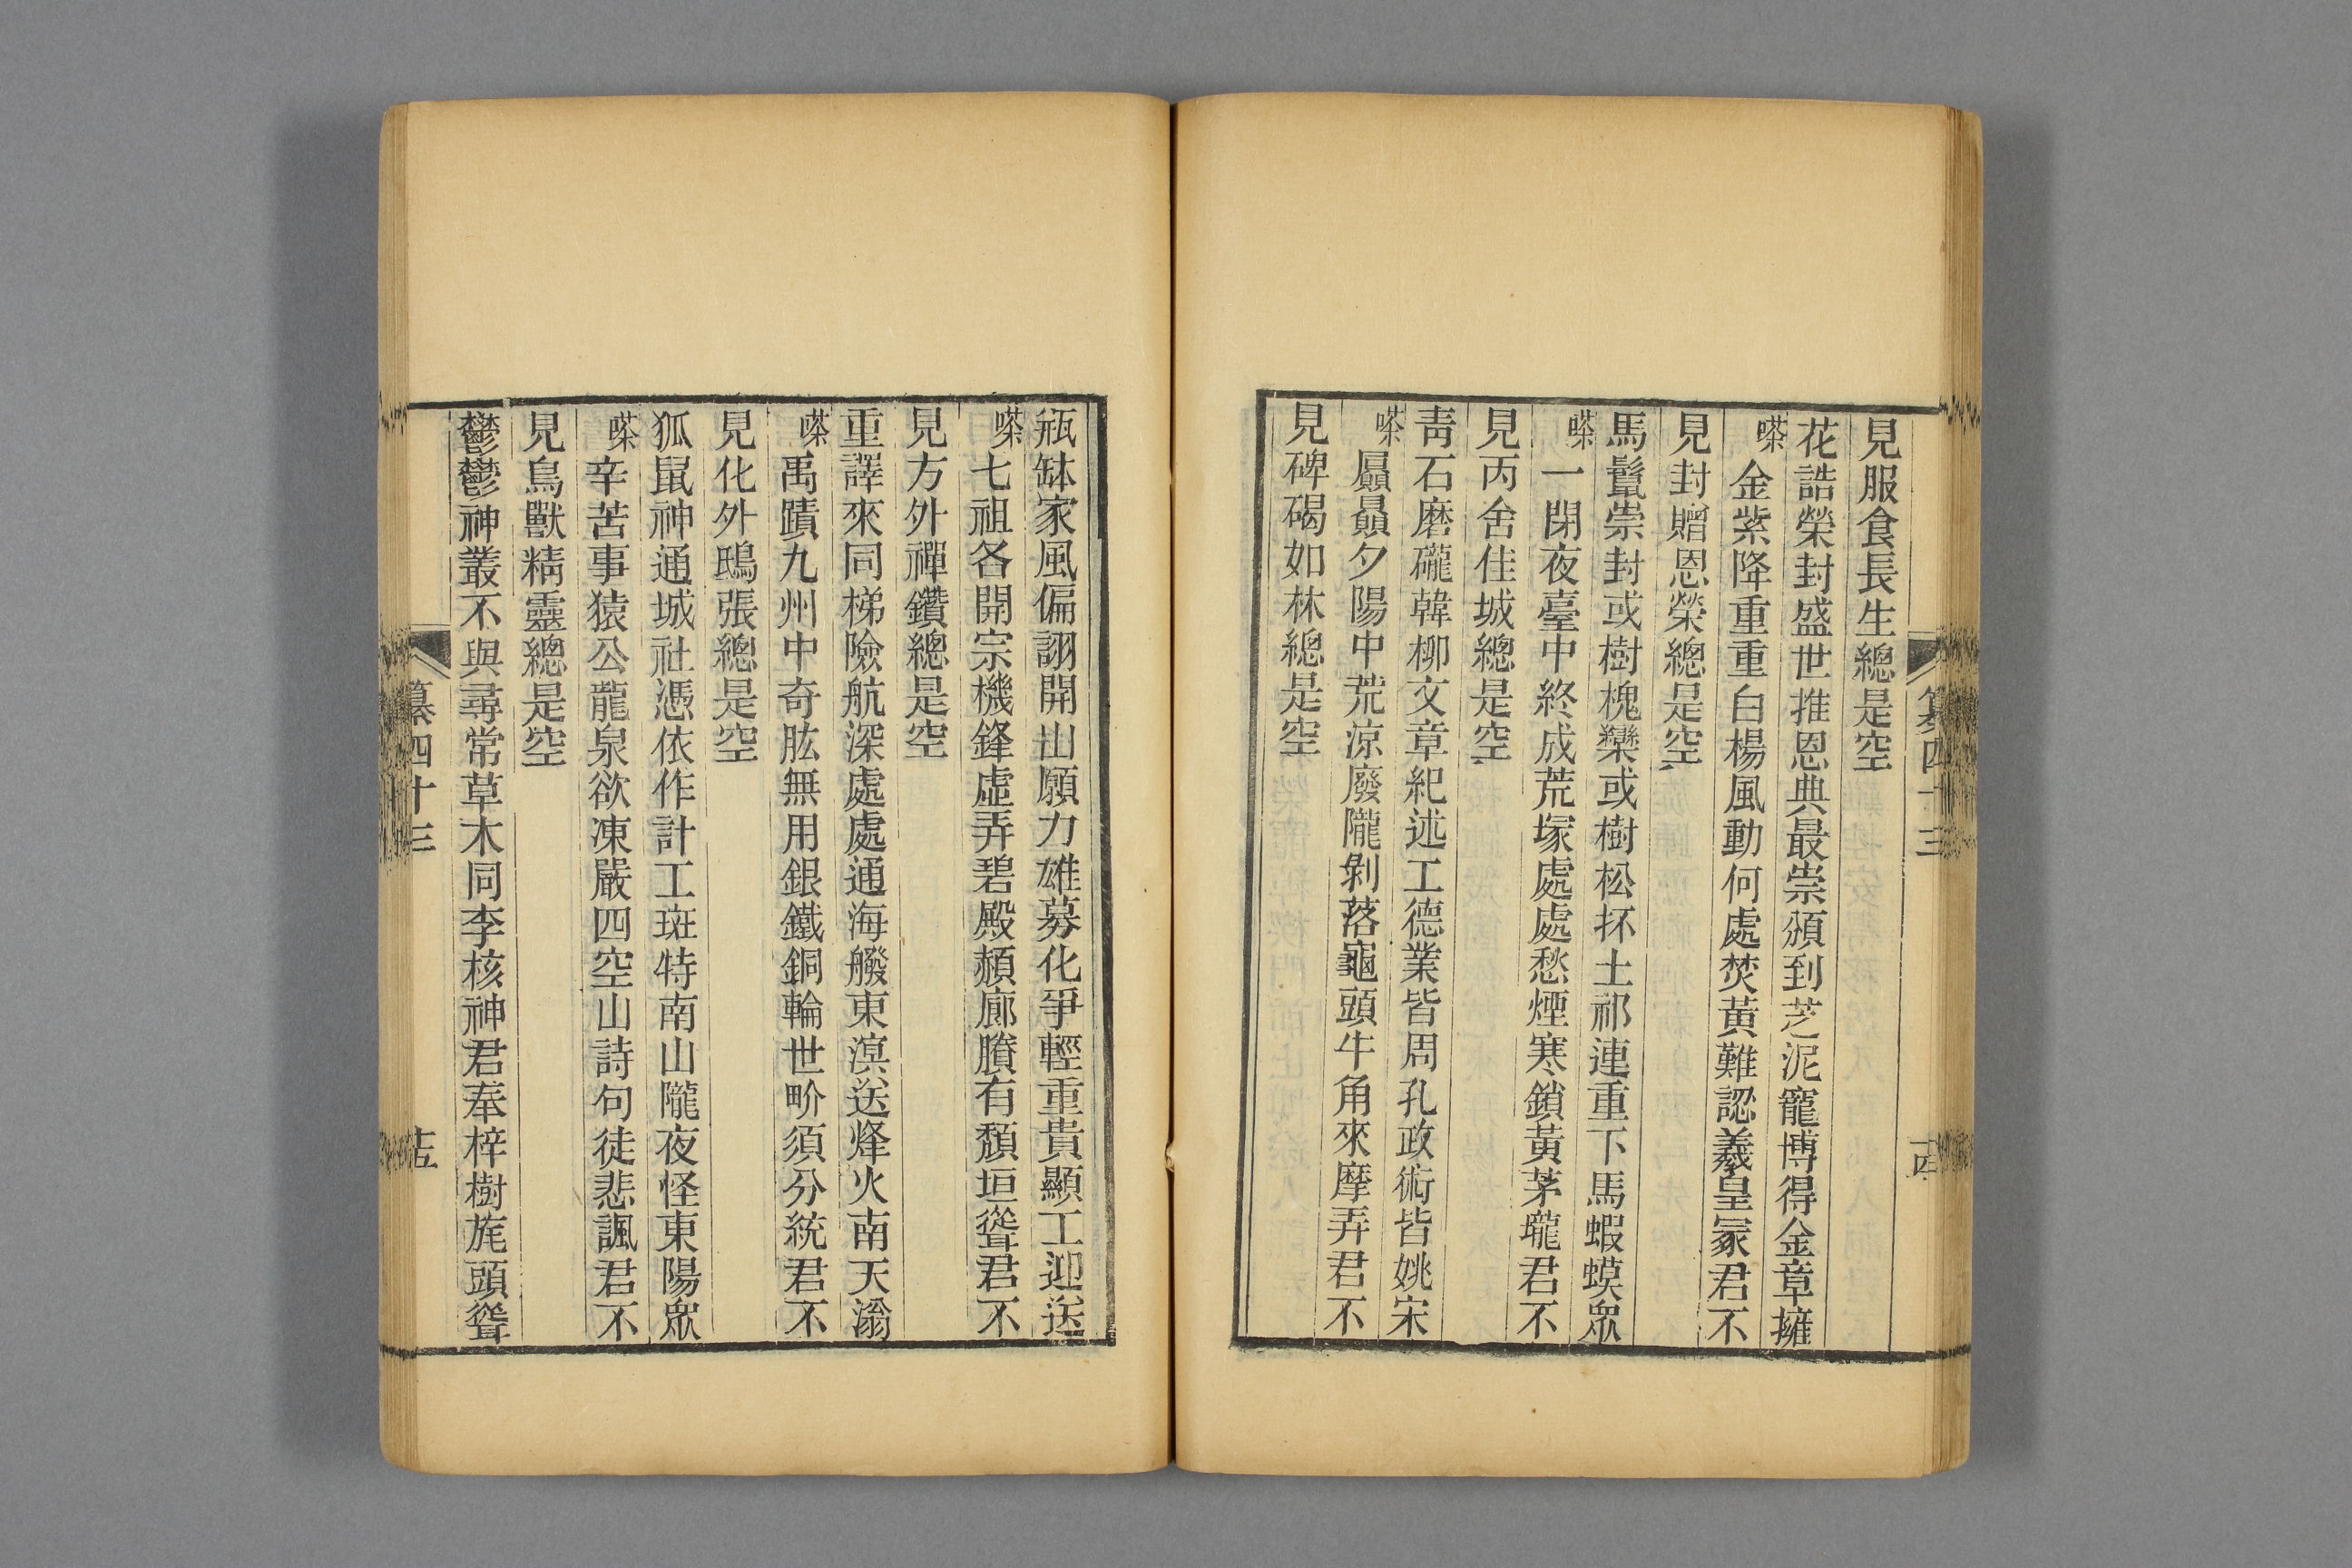 見服食長生總是空
花誥榮封盛世推恩典最崇頒到芝泥寵博得金章擁
嗏金紫降重重白楊風動何處焚黃難認羲皇冢君不
見封贈恩榮總是空
馬鬣崇封或樹槐欒或樹松抔土祁連重下馬蝦蟆眾
嗏一閉夜臺中終成荒塚處處愁煙寒鎖黃茅壠君不
見丙舍佳城總是空
靑石磨礲韓柳文章紀述工德業皆周孔政術皆姚宋
嗏贔屭夕陽中荒涼廢隴剝落龜頭牛角來摩弄君不
見碑碣如林總是空
纂四十三
十四
瓶缽家風偏詡開山願力雄募化爭輕重貴顯工迎送
嗏七祖各開宗機鋒虛弄碧殿頳廊賸有頽垣聳君不
見方外禪鑽總是空
重譯來同梯險航深處處通海艐東溟送烽火南天滃
嗏禹蹟九州中奇肱無用銀鐵銅輪世畍須分統君不
見化外鴟張總是空
狐鼠神通城社憑依作計工斑特南山隴夜怪東陽眾
嗏辛苦事猿公龍泉欲凍嚴四空山詩句徒悲諷君不
見鳥獸精靈總是空
鬱鬱神叢不與尋常草木同李核神君奉梓樹旄頭聳
纂四十三
十五